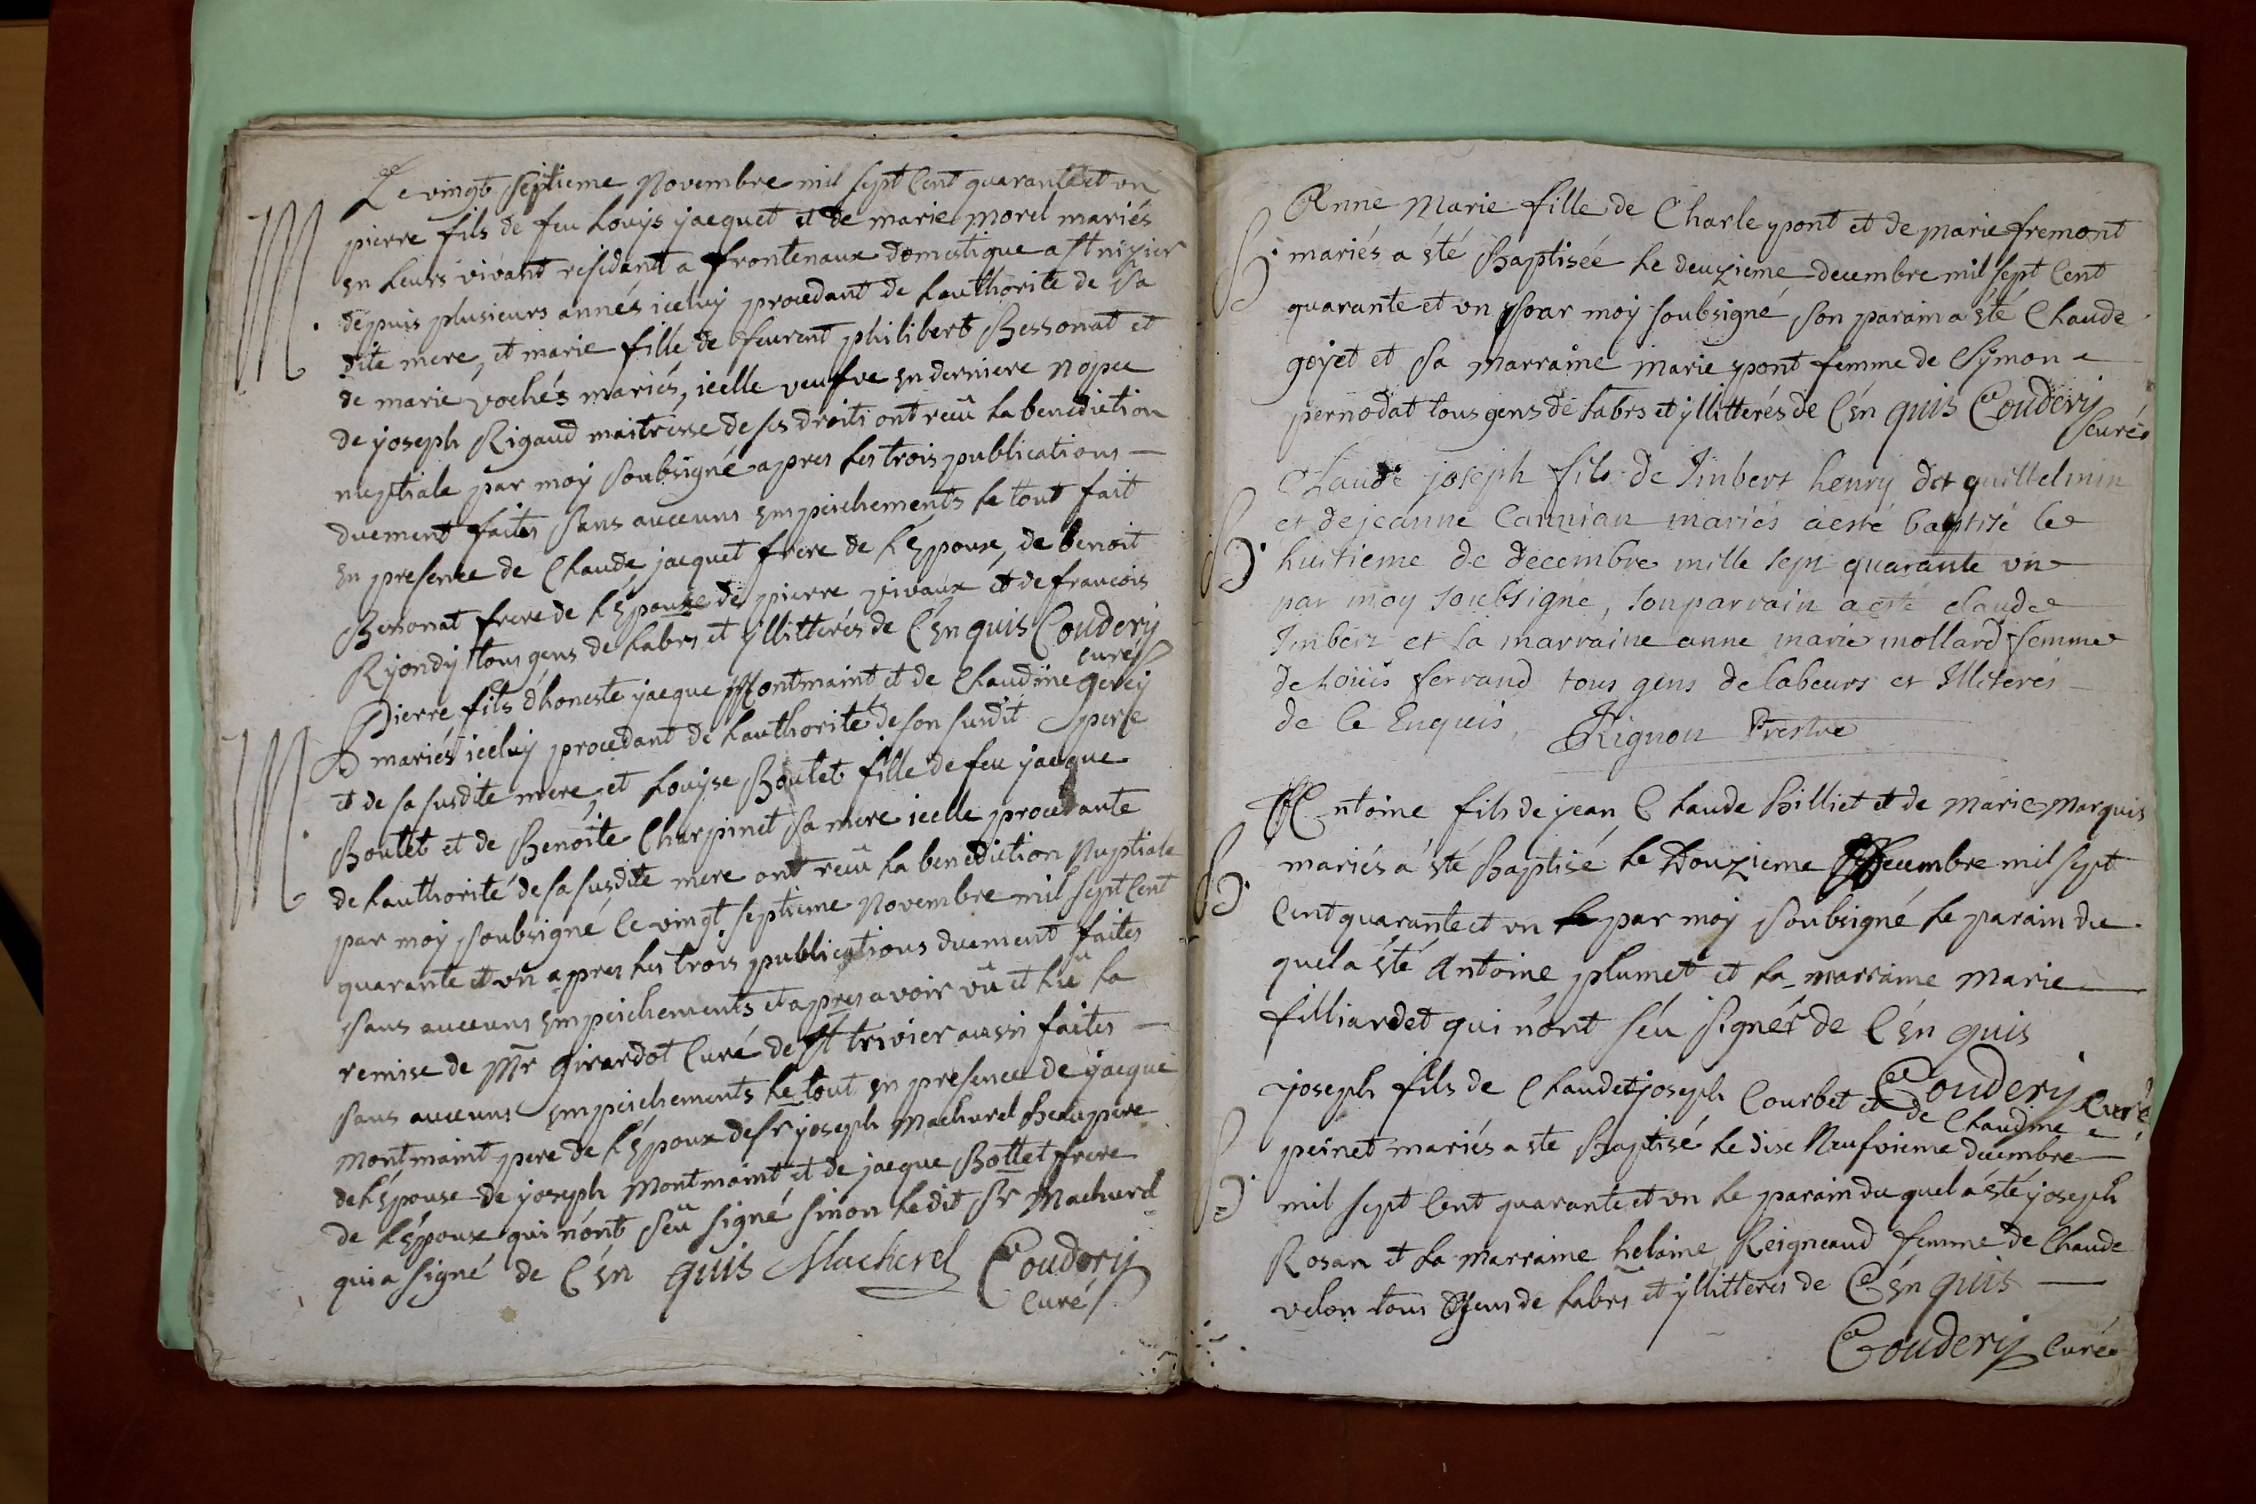 Le vingt septieme Novembre mil sept Cent quarante et un
M. pierre fils de feu Louÿs jacquet et de marie morel mariés
en Leurs vivant residant a frontenaux domestique a st nizier
depuis plusieurs annés iceluy procedant de Lauthorité de sa
dite mere, et marie fille de feurent philibert Bessonat et
de marie vochés mariés, icelle veufve en derniere nopce
de joseph Rigaud maitresse de ses droits ont recû La benediction
nuptiale par moy soubsigné apres Les trois publications —
duement faites sans aucuns empeichements Le tout fait
en presence de Claude jacquet frere de L'Epoux, de benoit
Bessonat frere de L'Epouse de pierre vivaux et de francois
Ryondy tous gens de Labrs et ÿllitterés de C'en quis Coudery
curé
M. Pierre fils d'honeste jacque Montmaint et de Claudine gerey
mariés iceluy procedant de Lauthorité de son susdit pere
et de sa susdite mere, et Louyse Boutet fille de feu jacque
Boutet et de Benoite Charpinet sa mere icelle procedante
de Lauthorité de sa susdite mere ont recû La benediction Nuptiale
par moy soubsigné Le vingt septieme Novembre mil sept Cent
quarante et un apres Les trois publications duement faites
sans aucuns empeichements et apres avoir vû et Lû La
remise de Mr girardot Curé de st trivier aussi faites —
sans aucuns empeichements Le tout en presence de jacque
Montmaint pere de L'Epoux de sr joseph Machurel beaupere
de L'Epouse de joseph Montmaint et de jacque Bottet frere
de L'Epouse qui n'ont seû signé sinon Ledit sr Machurel
qui a signé de C'en quis Macherel Coudery
Curé
Anne Marie fille de Charle pont et de marie fremont
B. mariés a êté Baptisée Le deuzieme decembre mil sept Cent
quarante et un par moy soubsigné son parain a êté Claude
goyet et sa marraine marie pont femme de Symon
pernodat tous gens de Labrs et ÿllitterés de C'en quis Coudery
Curé
Claude joseph fils de Imbert henry dit guillelmin
et de jeanne Cannian mariés à esté baptisé le
B. huitieme de decembre mille sept quarante un
par moy soubsigné, son parrain a esté claude
Imbert et sa marraine anne marie mollard femme
de Loüis ferrand tous gens de labeurs et Illiterés —
de Ce Enquis, Rignon Prestre
Antoine fils de jean Claude billiet et de Marie Marquis
B. mariés a êté Baptisé Le Douzieme Decembre mil sept
Cent quarante et un par moy soubsigné Le parain du
quel a êté Antoine plumet et La marraine Marie —
filliardet qui n'ont séu signér de C'en quis
Coudery Curé
joseph fils de Claude joseph Courbet et de Claudine
B. peinet mariés a ete Baptisé Le dix Neufvieme decembre —
mil sept Cent quarante et un Le parain du quel a êté joseph
Rosan et La marraine helaine Reigneaud femme de Claude
velon tous Gens de Labrs et ÿllitterés de C'en quis —
Coudery Curé